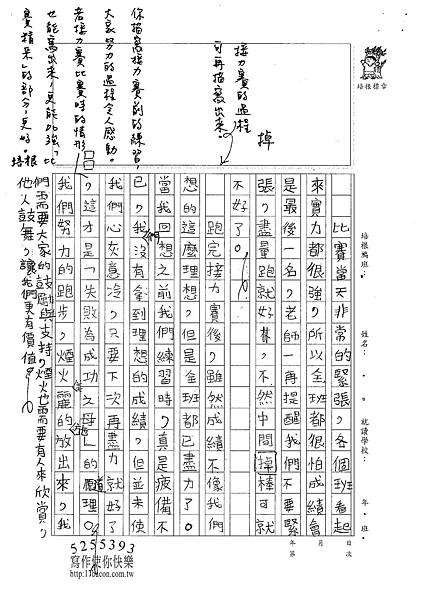 培根標章
培根編班：
姓名：
就讀學校：
年 班
年 月 日
第 次
比賽當天非常的緊張，各個班看起
來實力都很強，所以全班都很怕成績會
是最後一名，老師一再提醒我們不要緊
張，盡量跑就好替，不然中間掉棒可就
不好了。
跑完接力賽後，雖然成績不像我們
想的這麼理想，但是全班都已盡力了。
當我回想之前我們練習時，真是疲備不
已，我們沒有拿到理想的成績，但並未使
我們心灰意冷，只要下次再盡力就好了
，這才是「失敗為成功之母」的原理。
我們努力的跑步，煙火麗的放出來，我
們需要大家的鼓勵與支持，煙火也需要有人來欣賞，
他人鼓舞，讓我們更有價值。
掉
接力賽的過程
可再描寫出來。
你描寫接力賽前的練習，
大家努力的過程令人感動。
若接力賽比賽時的情形
也能寫出來，更能加強「比
賽精采」的部分，更好。
培根
呂
道
5255393
寫作使你快樂
http://www.1711con.com.tw